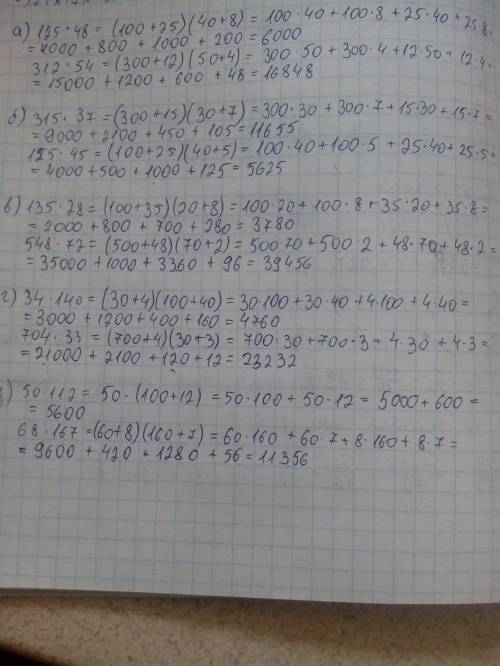 а) 125·48 = (100+25)(40+8) = 100·40 + 100·8 + 25·40 + 25·8
= 4000 + 800 + 1000 + 200 = 6000
312·54 = (300+12)(50+4) = 300·50 + 300·4 + 12·50 + 12·4
= 15000 + 1200 + 600 + 48 = 16848
б) 315·37 = (300+15)(30+7) = 300·30 + 300·7 + 15·30 + 15·7 =
= 9000 + 2100 + 450 + 105 = 11655
125·45 = (100+25)(40+5) = 100·40 + 100·5 + 25·40 + 25·5 =
= 4000 + 500 + 1000 + 125 = 5625
в) 135·28 = (100+35)(20+8) = 100·20 + 100·8 + 35·20 + 35·8 =
= 2000 + 800 + 700 + 280 = 3780
548·72 = (500+48)(70+2) = 500 70 + 500·2 + 48·70 + 48·2 =
= 35000 + 1000 + 3360 + 96 = 39456
г) 34·140 = (30+4)(100+40) = 30·100 + 30·40 + 4·100 + 4·40 =
= 3000 + 1200 + 400 + 160 = 4760
704·33 = (700+4)(30+3) = 700·30 + 700·3 + 4·30 + 4·3 =
= 21000 + 2100 + 120 + 12 = 23232
) 50·112 = 50·(100+12) = 50·100 + 50·12 = 5000 + 600 =
= 5600
68·167 = (60+8)(160+7) = 60·160 + 60·7 + 8·160 + 8·7 =
= 9600 + 420 + 1280 + 56 = 11356